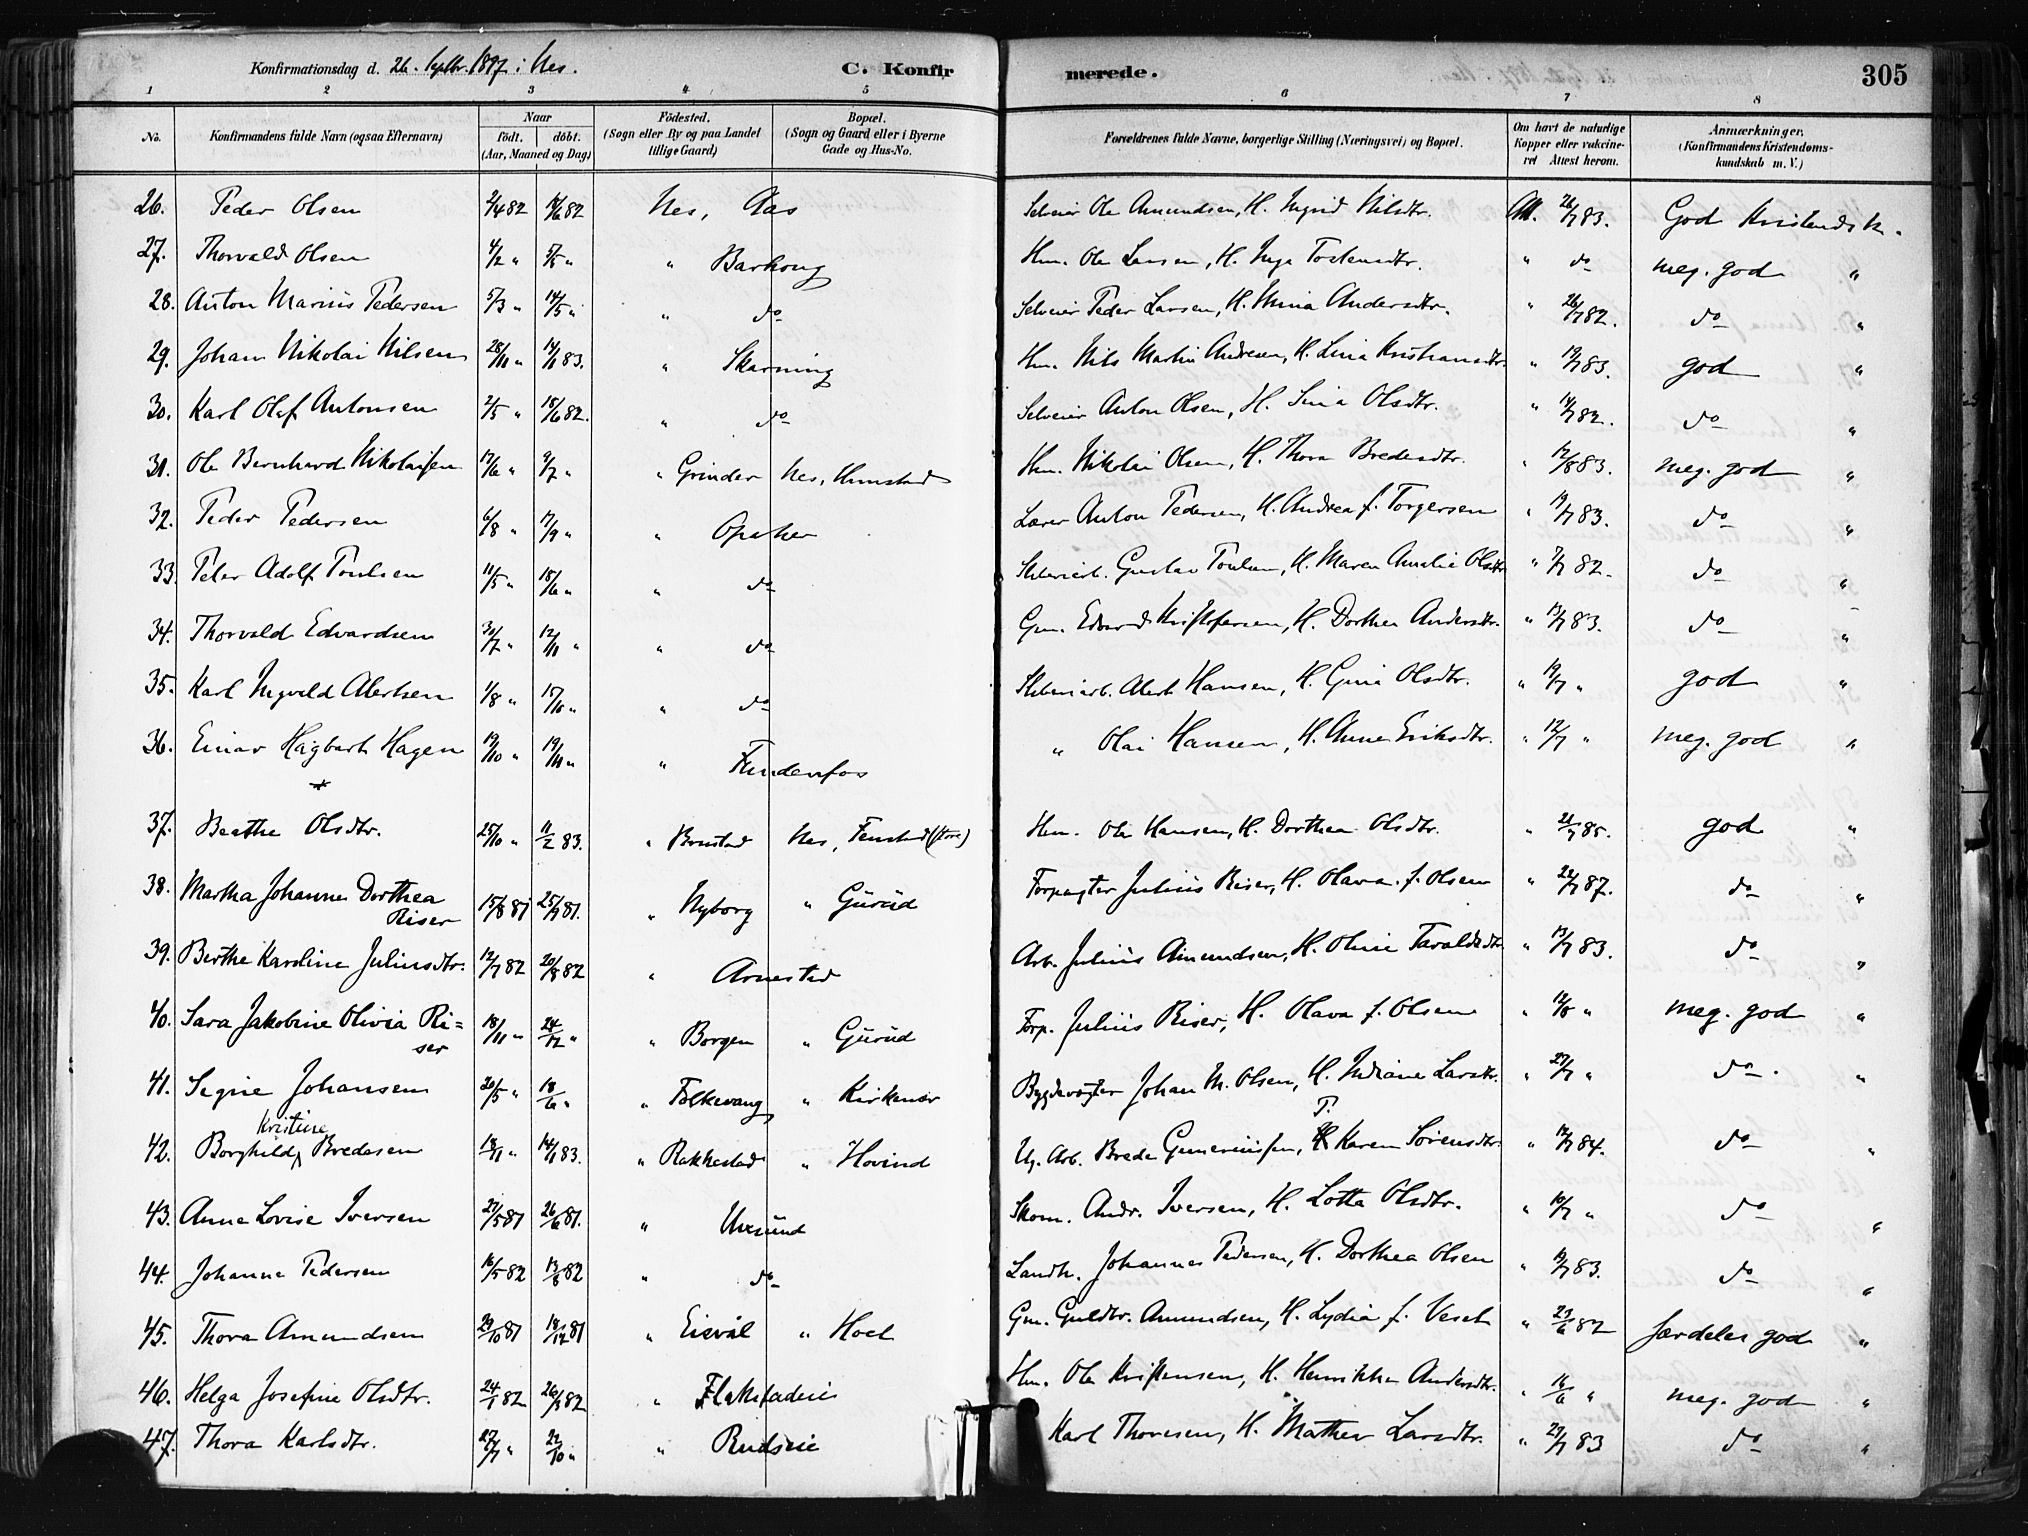 Konfirmationsdag d. 26. Septbr. 1897 i Nes. C. Konfirmerede. 305
1 2 3 4 5 6 7 8
No. Konfirmandens fulde Navn (ogsaa Efternavn) Naar født. døbt. (Aar, Maaned og Dag) Fødested. (Sogn eller By og paa Landet tillige Gaard) Bopæl. (Sogn og Gaard eller i Byerne Gade og Hus-No. Forældrenes fulde Navne, borgerlige Stilling (Næringsvei) og Bopæl. Om havt de naturlige Kopper eller vaccineret Attest herom. Anmærkninger. (Konfirmandens Kristendomskundskab m. V.)
26. Peder Olsen 2/4 82 18/6 82 Nes, Aas Selveier Ole Amundsen, H. Ingrid Nilsdtr. Att. 26/7 83. God Kristendsk.
27. Thorvald Olsen 4/2 " 5/5 " " Barkong Hm. Ole Larsen, H. Inga Tostensdtr. " do meg. god "
28. Anton Marius Pedersen 5/3 " 14/5 " " do Selveier Peder Larsen, H. Mina Andersdtr. " 26/7 82. do "
29. Johan Nikolai Nilsen 28/11 " 14/1 83. " Skarning Hm. Nils Martin Andresen, H. Lina Kristiansdtr. " 19/7 83. god "
30. Karl Olaf Antonsen 2/5 " 18/6 82. " do Selveier Anton Olsen, H. Lina Olsdtr. " 14/7 82. do "
31. Ole Bernhard Nikolaisen 17/6 " 9/7 " " Grinder Nes, Hunstad Hm. Nikolai Olsen, H. Thora Bredesdtr. " 12/8 83. meg. god "
32. Peder Pedersen 6/8 " 17/9 " " Opaker Lærer Anton Pedersen, H. Andrea f. Torgersen " 19/7 83. do "
33. Peter Adolf Poulsen 11/5 " 18/6 " " do Sliberiarb. Gustav Poulsen, H. Maren Amalie Olsdtr " 7/7 82. do "
34. Thorvald Edvardsen 30/7 " 12/11 " " do Gm. Edvard Kristofersen, H. Dorthea Andersdtr. " 13/7 83. do "
35. Karl Ingvald Alertsen 1/8 " 15/10 " " do Sliberiarb. Alert Hansen, H. Gina Olsdtr. " 19/7 " god "
36. Einar Hagbart Hagen 19/10 " 19/11 " " Fundenfos " Olai Hansen, H. Anne Eriksdtr. " 12/7 " meg. god "
37. Beathe Olsdtr. 25/10 " 11/2 83. " Brustad Nes, Fenstad (store) Hm. Ole Hansen, H. Dorthea Olsdtr. " 21/7 85. god "
38. Martha Johanne Dorthea
Riser 15/8 81 25/9 81. " Nyborg " Gurud Forpagter Julius Riser, H. Olava f. Olsen " 22/7 87. do "
39. Berthe Karoline Juliusdtr. 12/7 82 20/8 82 " Arnestad Arb. Julius Amundsen, H. Oline Tavaldsdtr " 13/7 83. do "
40. Sara Jakobine Olivia Ri=
ser 18/11 " 24/12 " " Borgen " Gurud Forp. Julius Riser, H. Olava f. Olsen " 12/8 " meg. god "
41. Signe Johansen 20/5 " 18/6 " " Folkevang " Kirkenær Bygdevogter Johan M. Olsen, H. Indiane Larsdtr. " 27/7 " do. "
Kristine P.
42. Borghild Bredesen 18/11 " 14/1 83. " Rakkestad " Hovind Ug. Arb. Brede Guneriussen, Karen Sörensdtr. " 12/7 84. do "
43. Anna Lovise Iversen 27/5 81 26/6 81. " Uvesund Skom. Andr. Iversen, H. Lotta Olsdtr. " 10/7 " do "
44. Johanne Pedersen 16/5 82 13/8 82 " do Landh. Johannes Pedersen, H. Dorthea Olsen " 19/7 83. do "
45. Thora Amundsen 23/10 81 18/12 81 " Eisvål " Hoel Gm. Guldbr. Amundsen, H. Lydia f. Veset " 23/6 82 særdeles god "
46. Helga Josefine Olsdtr. 24/1 82 26/3 82 " Flakstadeie Hm. Ole Kristensen, H. Henrikke Andersdtr. " 16/6 " meg. god "
47. Thora Karlsdtr. 27/7 " 22/10 " " Rudseie Karl Thoresen, H. Mathea Larsdtr. " 27/7 83 do "